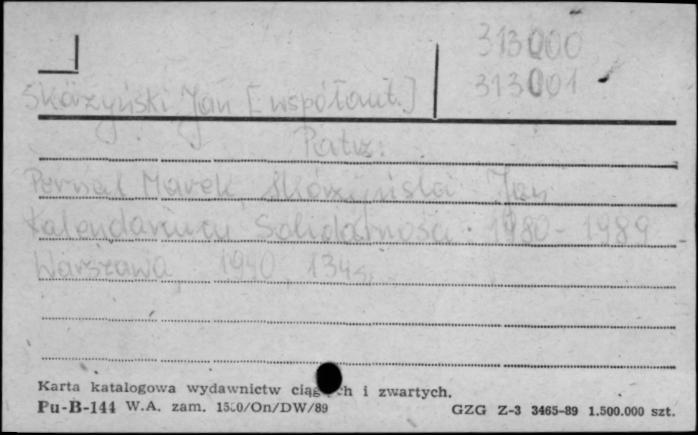 313000
313001
Skórzyński Jan [współaut.]
Patrz:
Pernal Marek, Skórzyński Jan
Kalendarium Solidarności 1980-1989
Warszawa, 1990, 134 s.
Karta katalogowa wydawnictw i zwartych.
Pu-B-144 W.A. zam. /On/DW/89
GZG Z-3 3465-89 1.500.000 szt.